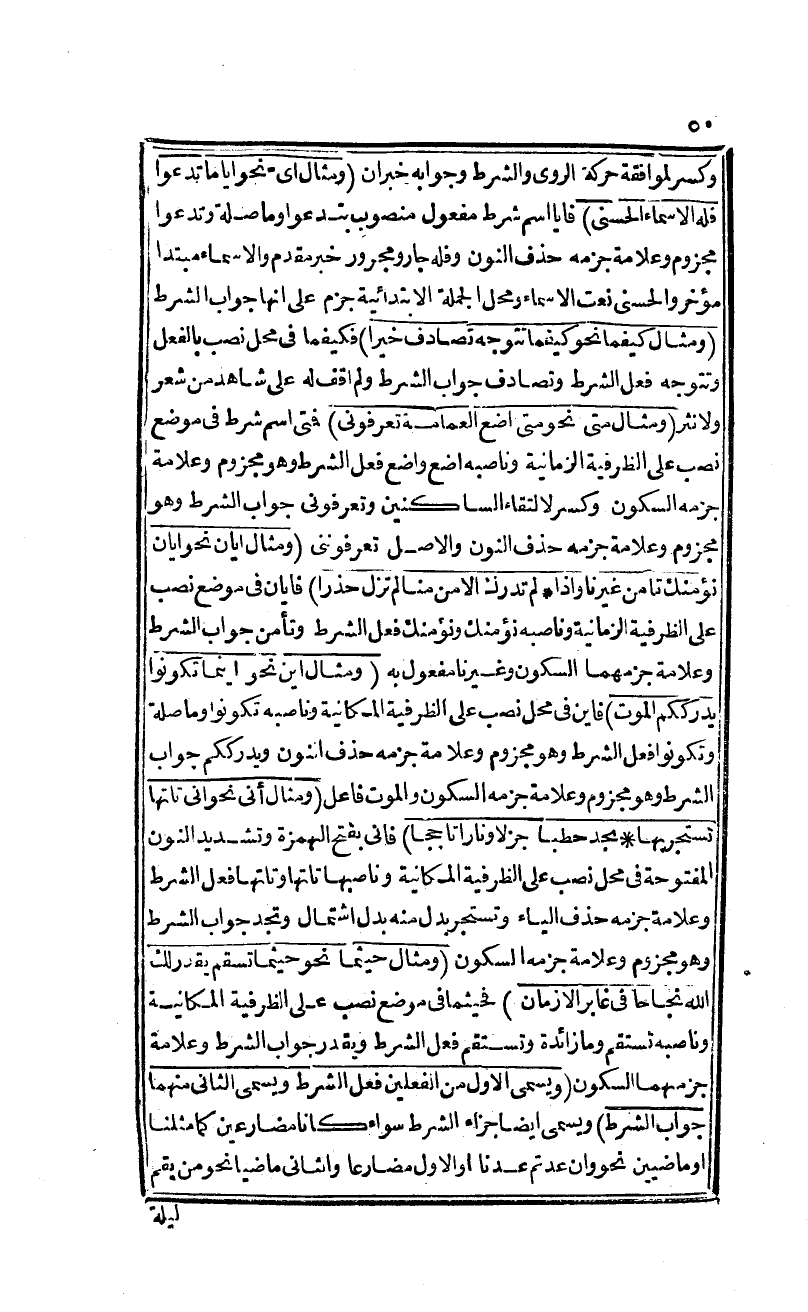 ٥٠
وكسر لموافقة حركة الروى والشرط وجوابه خبران (ومثال اى نحو اياما تدعوا
فله الاسماء الحسنى) فايا اسم شرط مفعول منصوب بتدعوا وما صلة وتدعوا
مجزوم وعلامة جزمه حذف النون وفله جار ومجرور خبر مقدم والاسماء مبتدا
مؤخر والحسنى نعت الاسماء ومحل الجملة الابتدائية جزم على انها جواب الشرط
(ومثال كيفما نحو كيفما تتوجه تصادف خيرا) فكيفما فى محل نصب بالفعل
وتتوجه فعل الشرط وتصادف جواب الشرط ولم اقف له على شاهد من شعر
ولا نثر (ومثال متى نحو متى اضع العمامة تعرفونى) فتى اسم شرط فى موضع
نصب على الظرفية الزمانية وناصبه اضع واضع فعل الشرط وهو مجزوم وعلامة
جزمه السكون وكسر لالتقاء الساكنين وتعرفونى جواب الشرط وهو
مجزوم وعلامة جزمه حذف النون والاصل تعرفوننى (ومثال ايان نحو ايان
نؤمنك تامن غيرنا واذا * لم تدرك الامن منا لم تزل حذرا) فايان فى موضع نصب
على الظرفية الزمانية وناصبه نؤمنك ونؤمنك فعل الشرط وتأمن جواب الشرط
وعلامة جزمهما السكون وغيرنا مفعول به (ومثال اين نحو اينما تكونوا
يدرككم الموت) فاين فى محل نصب على الظرفية المكانية وناصبه تكونوا وما صلة
وتكونوا فعل الشرط وهو مجزوم وعلامة جزمه حذف النون ويدرككم جواب
الشرط وهو مجزوم وعلامة جزمه السكون والموت فاعل (ومثال أنى نحو انى تاتها
تستجر بها * تجد حطبا جزلا ونارا تاججا) فانى بفتح الهمزة وتشديد النون
المفتوحة فى محل نصب على الظرفية المكانية وناصبها تاتها وتاتها فعل الشرط
وعلامة جزمه حذف الياء وتستجر بدل منه بدل اشتمال وتجد جواب الشرط
وهو مجزوم وعلامة جزمه السكون (ومثال حيثما نحو حيثما تستقم يقدر لك
الله نجاحا فى غابر الازمان) فحيثما فى موضع نصب على الظرفية المكانية
وناصبه تستقم وما زائدة وتستقم فعل الشرط ويقدر جواب الشرط وعلامة
جزمهما السكون (ويسمى الاول من الفعلين فعل الشرط ويسمى الثانى منهما
جواب الشرط) ويسمى ايضا جزاء الشرط سواء كانا مضارعين كما مثلنا
او ماضيين نحو وان عدتم عدنا او الاول مضارعا والثانى ماضيا نحو من يقم
ليلة